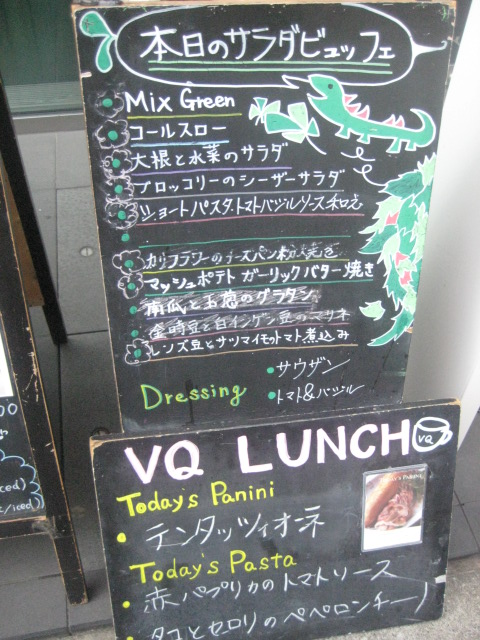 本日のサラダビュッフェ
Mix Green
コールスロー
大根と水菜のサラダ
ブロッコリーのシーザーサラダ
ショートパスタ・トマトバジルソース和え
カリフラワーのチーズパン粉焼き
マッシュポテト ガーリックバター焼き
南瓜と玉葱のグラタン
金時豆と白インゲン豆のマリネ
レンズ豆とサツマイモのトマト煮込み
Dressing
・サウザン
・トマト&バジル
VQ LUNCH
VQ
Today's Panini
・テンタッツィオーネ
Today's Pasta
・赤パプリカのトマトソース
・タコとセロリのペペロンチーノ